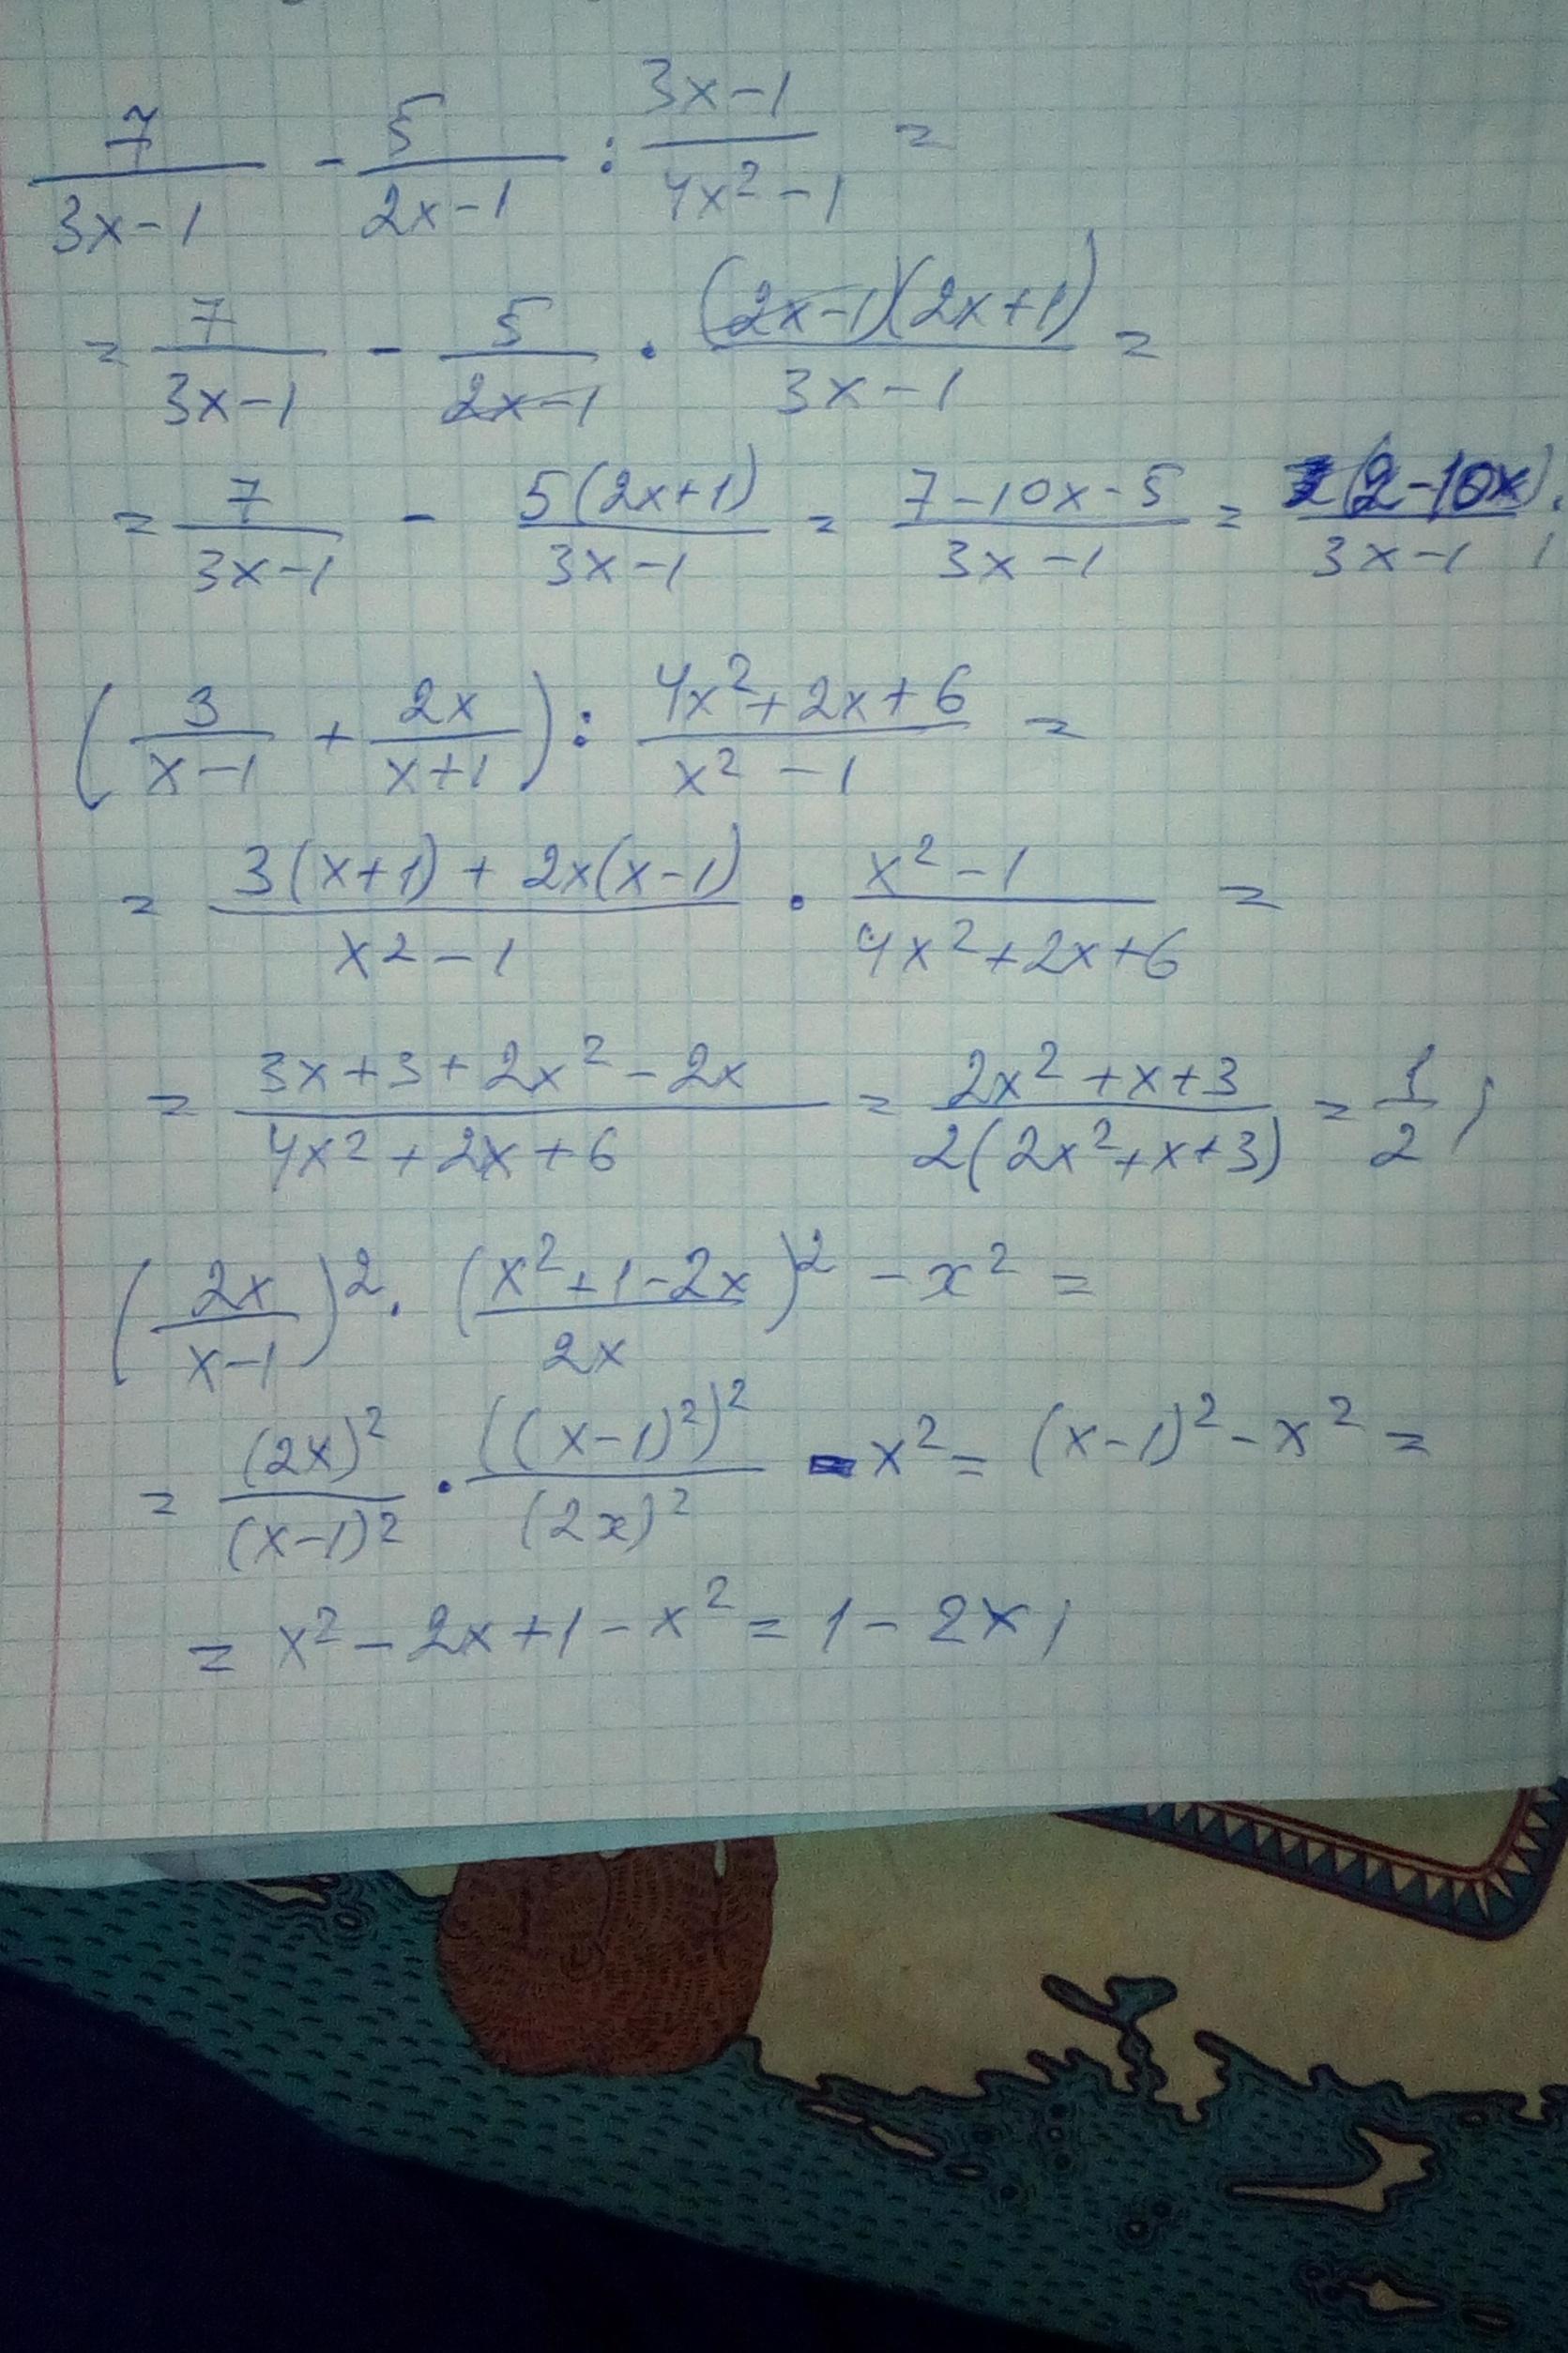 7/(3x-1) - 5/(2x-1) : (3x-1)/(4x²-1) =
= 7/(3x-1) - 5/(2x-1) · (2x-1)(2x+1)/(3x-1) =
= 7/(3x-1) - 5(2x+1)/(3x-1) = (7-10x-5)/(3x-1) = (2-10x)/(3x-1);
(3/(x-1) + 2x/(x+1)) : (4x²+2x+6)/(x²-1) =
= (3(x+1)+2x(x-1))/(x2-1) · (x²-1)/(4x²+2x+6) =
= (3x+3+2x²-2x)/(4x²+2x+6) = (2x²+x+3)/(2(2x²+x+3)) = 1/2;
(2x/(x-1))² · ((x²+1-2x)/2x)² - x² =
= (2x)²/(x-1)² · ((x-1)²)²/(2x)² - x² = (x-1)² - x² =
= x² - 2x + 1 - x² = 1 - 2x;